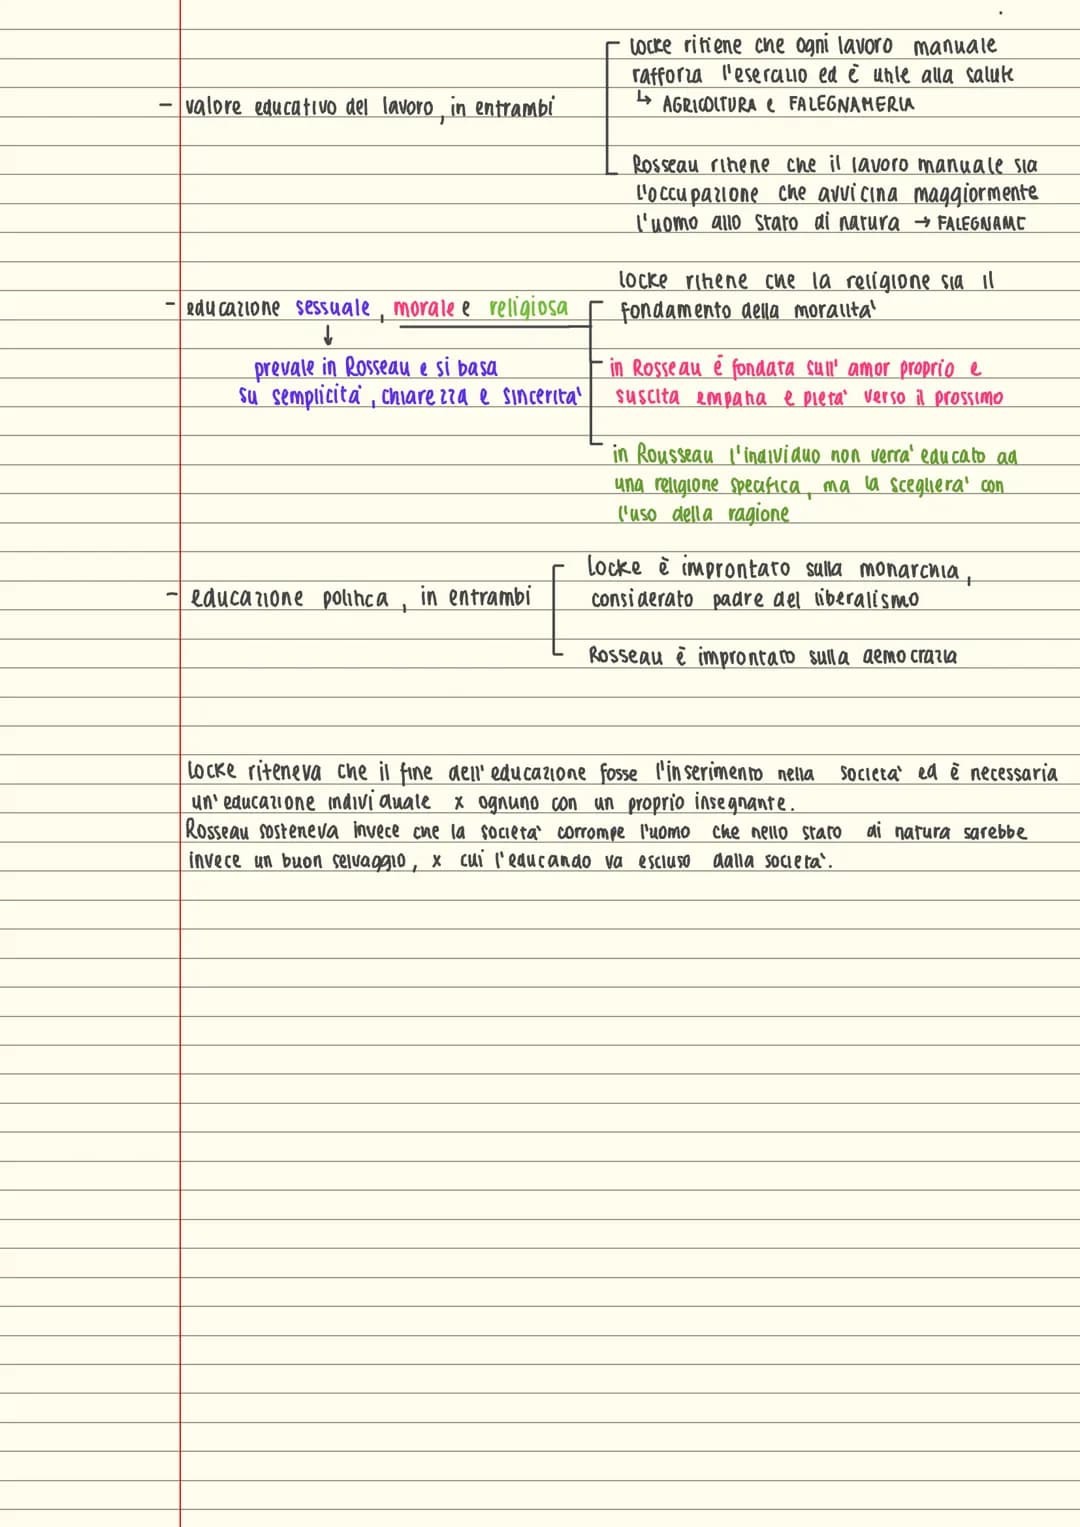 - valore educativo del lavoro, in entrambi
Locke ritiene che ogni lavoro manuale
rafforza l'esercizio ed è utile alla salute
↳ AGRICOLTURA e FALEGNAMERIA
Rosseau ritiene che il lavoro manuale sia
l'occupazione che avvicina maggiormente
l'uomo allo stato di natura → FALEGNAME
- educazione sessuale, morale e religiosa
↓
prevale in Rosseau e si basa
su semplicità, chiarezza e sincerità
locke ritiene che la religione sia il
fondamento della moralità
in Rosseau é fondata sull' amor proprio e
suscita empatia e pietà verso il prossimo
in Rousseau l'individuo non verrà educato ad
una religione specifica, ma la sceglierà con
l'uso della ragione
- educazione politica, in entrambi
Locke è improntato sulla monarchia,
considerato padre del liberalismo
Rosseau è improntato sulla democrazia
Locke riteneva che il fine dell' educazione fosse l'inserimento nella società ed è necessaria
un' educazione individuale x ognuno con un proprio insegnante.
Rosseau sosteneva invece che la società corrompe l'uomo che nello stato di natura sarebbe
invece un buon selvaggio, x cui l'educando va escluso dalla società.